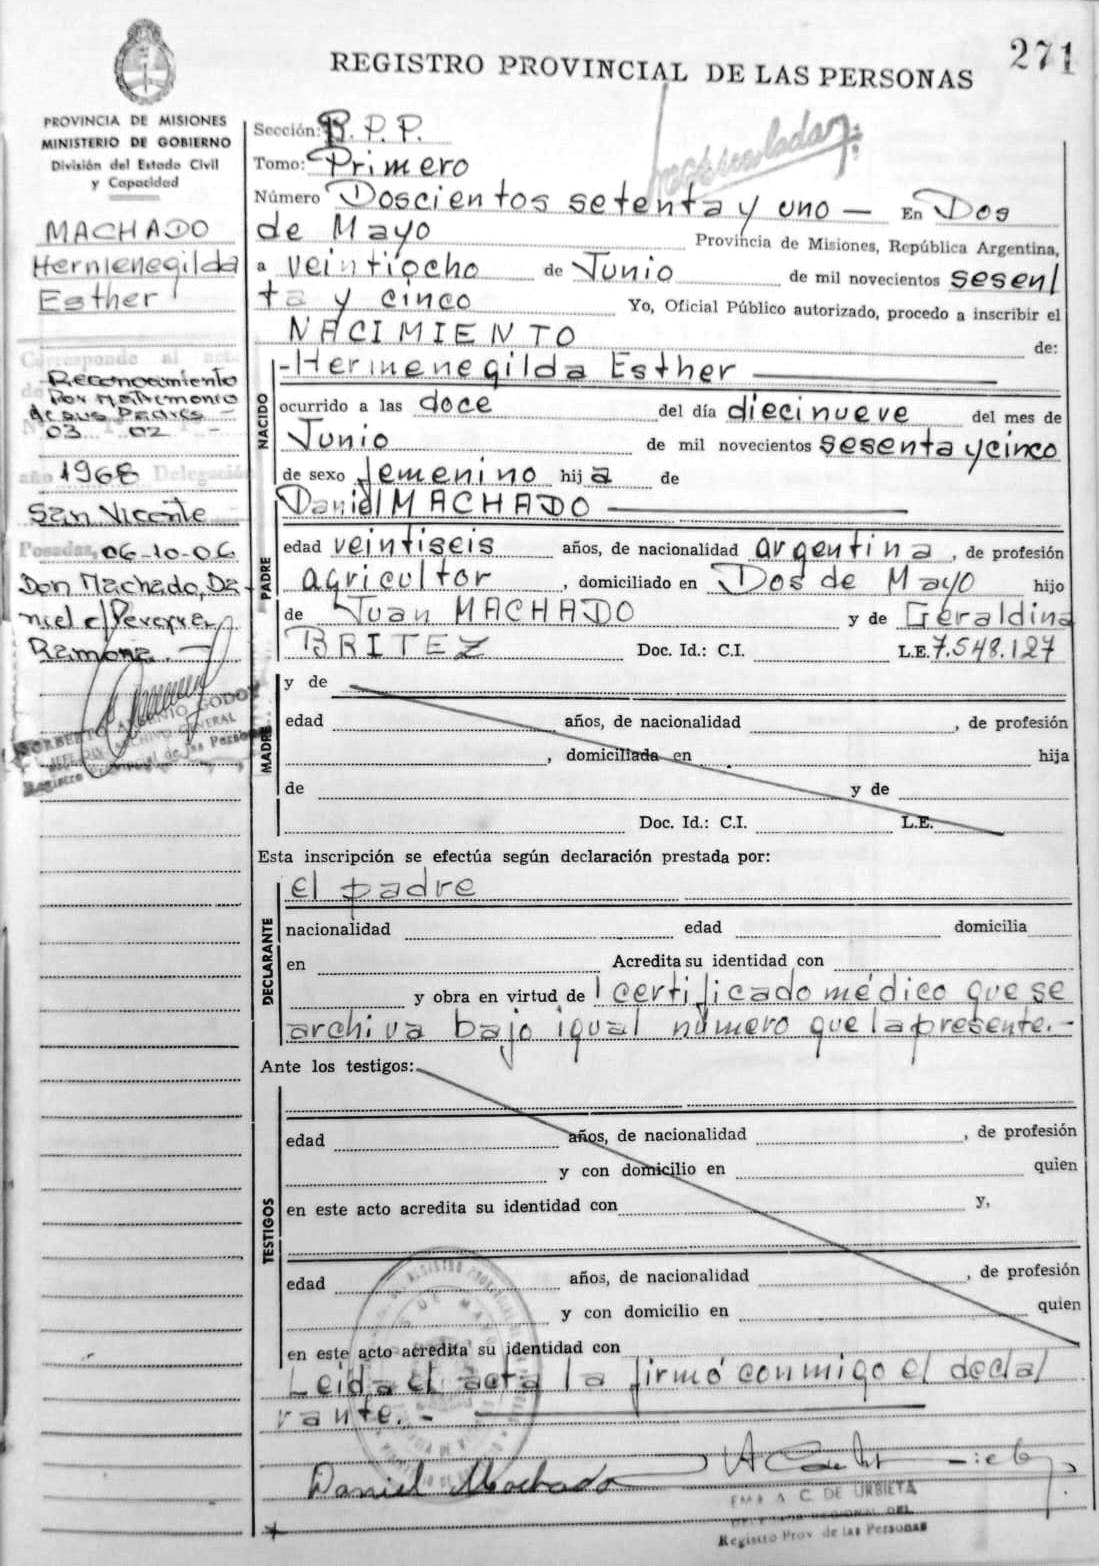 271
REGISTRO PROVINCIAL DE LAS PERSONAS
PROVINCIA DE MISIONES
MINISTERIO DE GOBIERNO
División del Estado Civil
y Capacidad
MACHADO
Hermenegilda
Esther
Corresponde al acta
Reconocimiento
Por Matrimonio
de sus Padres -
03 02 -
año 1968 Delegación
San Vicente
Posadas, 06-10-06
Don Machado, Da-
niel c/Pereyra
Ramona. -
NORBERTO ARSENIO GODOY
JEFE DIV. ARCHIVO GENERAL
Registro Provincial de las Personas
Sección: R. P. P.
Tomo: Primero
Número Doscientos setenta y uno — En Dos
de Mayo Provincia de Misiones, República Argentina,
a veintiocho de Junio de mil novecientos sesen/
ta y cinco Yo, Oficial Público autorizado, procedo a inscribir el
NACIMIENTO de:
NACIDO
-Hermenegilda Esther
ocurrido a las doce del día diecinueve del mes de
Junio de mil novecientos sesenta y cinco
de sexo femenino hija de
PADRE
Daniel MACHADO
edad veintiseis años, de nacionalidad argentina, de profesión
agricultor, domiciliado en Dos de Mayo hijo
de Juan MACHADO y de Geraldina
BRITEZ Doc. Id.: C.I. L.E. 7.548.127
MADRE
y de
edad años, de nacionalidad , de profesión
, domiciliada en hija
de y de
Doc. Id.: C.I. L.E.
Esta inscripción se efectúa según declaración prestada por:
DECLARANTE
el padre
nacionalidad edad domicilia
en Acredita su identidad con
y obra en virtud de l certificado médico que se
archiva bajo igual número que la presente.-
Ante los testigos:
TESTIGOS
edad años, de nacionalidad , de profesión
y con domicilio en quien
en este acto acredita su identidad con y,
edad años, de nacionalidad , de profesión
y con domicilio en quien
en este acto acredita su identidad con
Leída el acta la firmó conmigo el decla/
rante. -
Daniel Machado
EMA A C. DE URBIETA
DELEGADA REGIONAL DEL
Registro Prov de las Personas